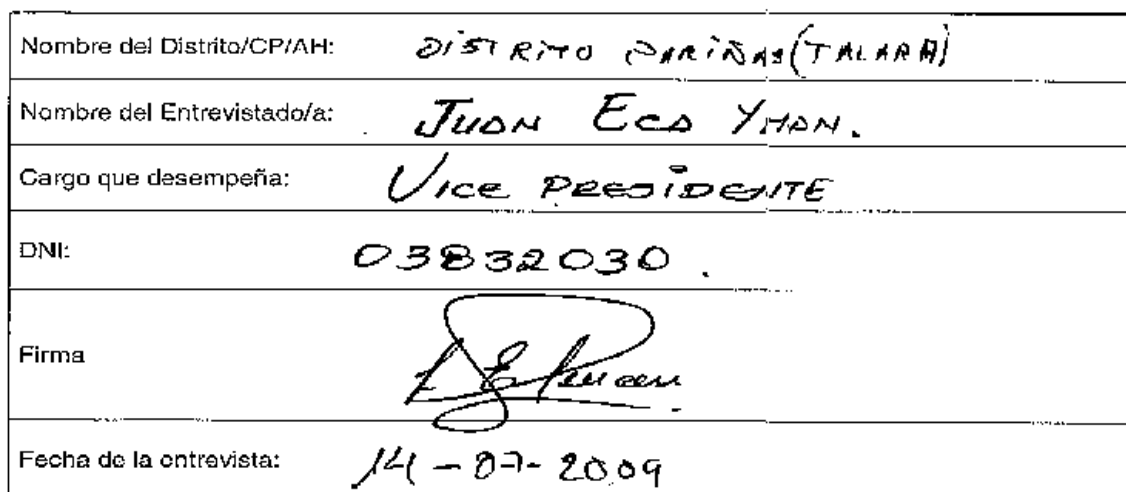 Nombre del Distrito/CP/AH: DISTRITO PARIÑAS (TALARA)
Nombre del Entrevistado/a: JUAN ECA YMAN.
Cargo que desempeña: VICE PRESIDENTE
DNI: 03832030.
Firma
Fecha de la entrevista: 14-07-2009